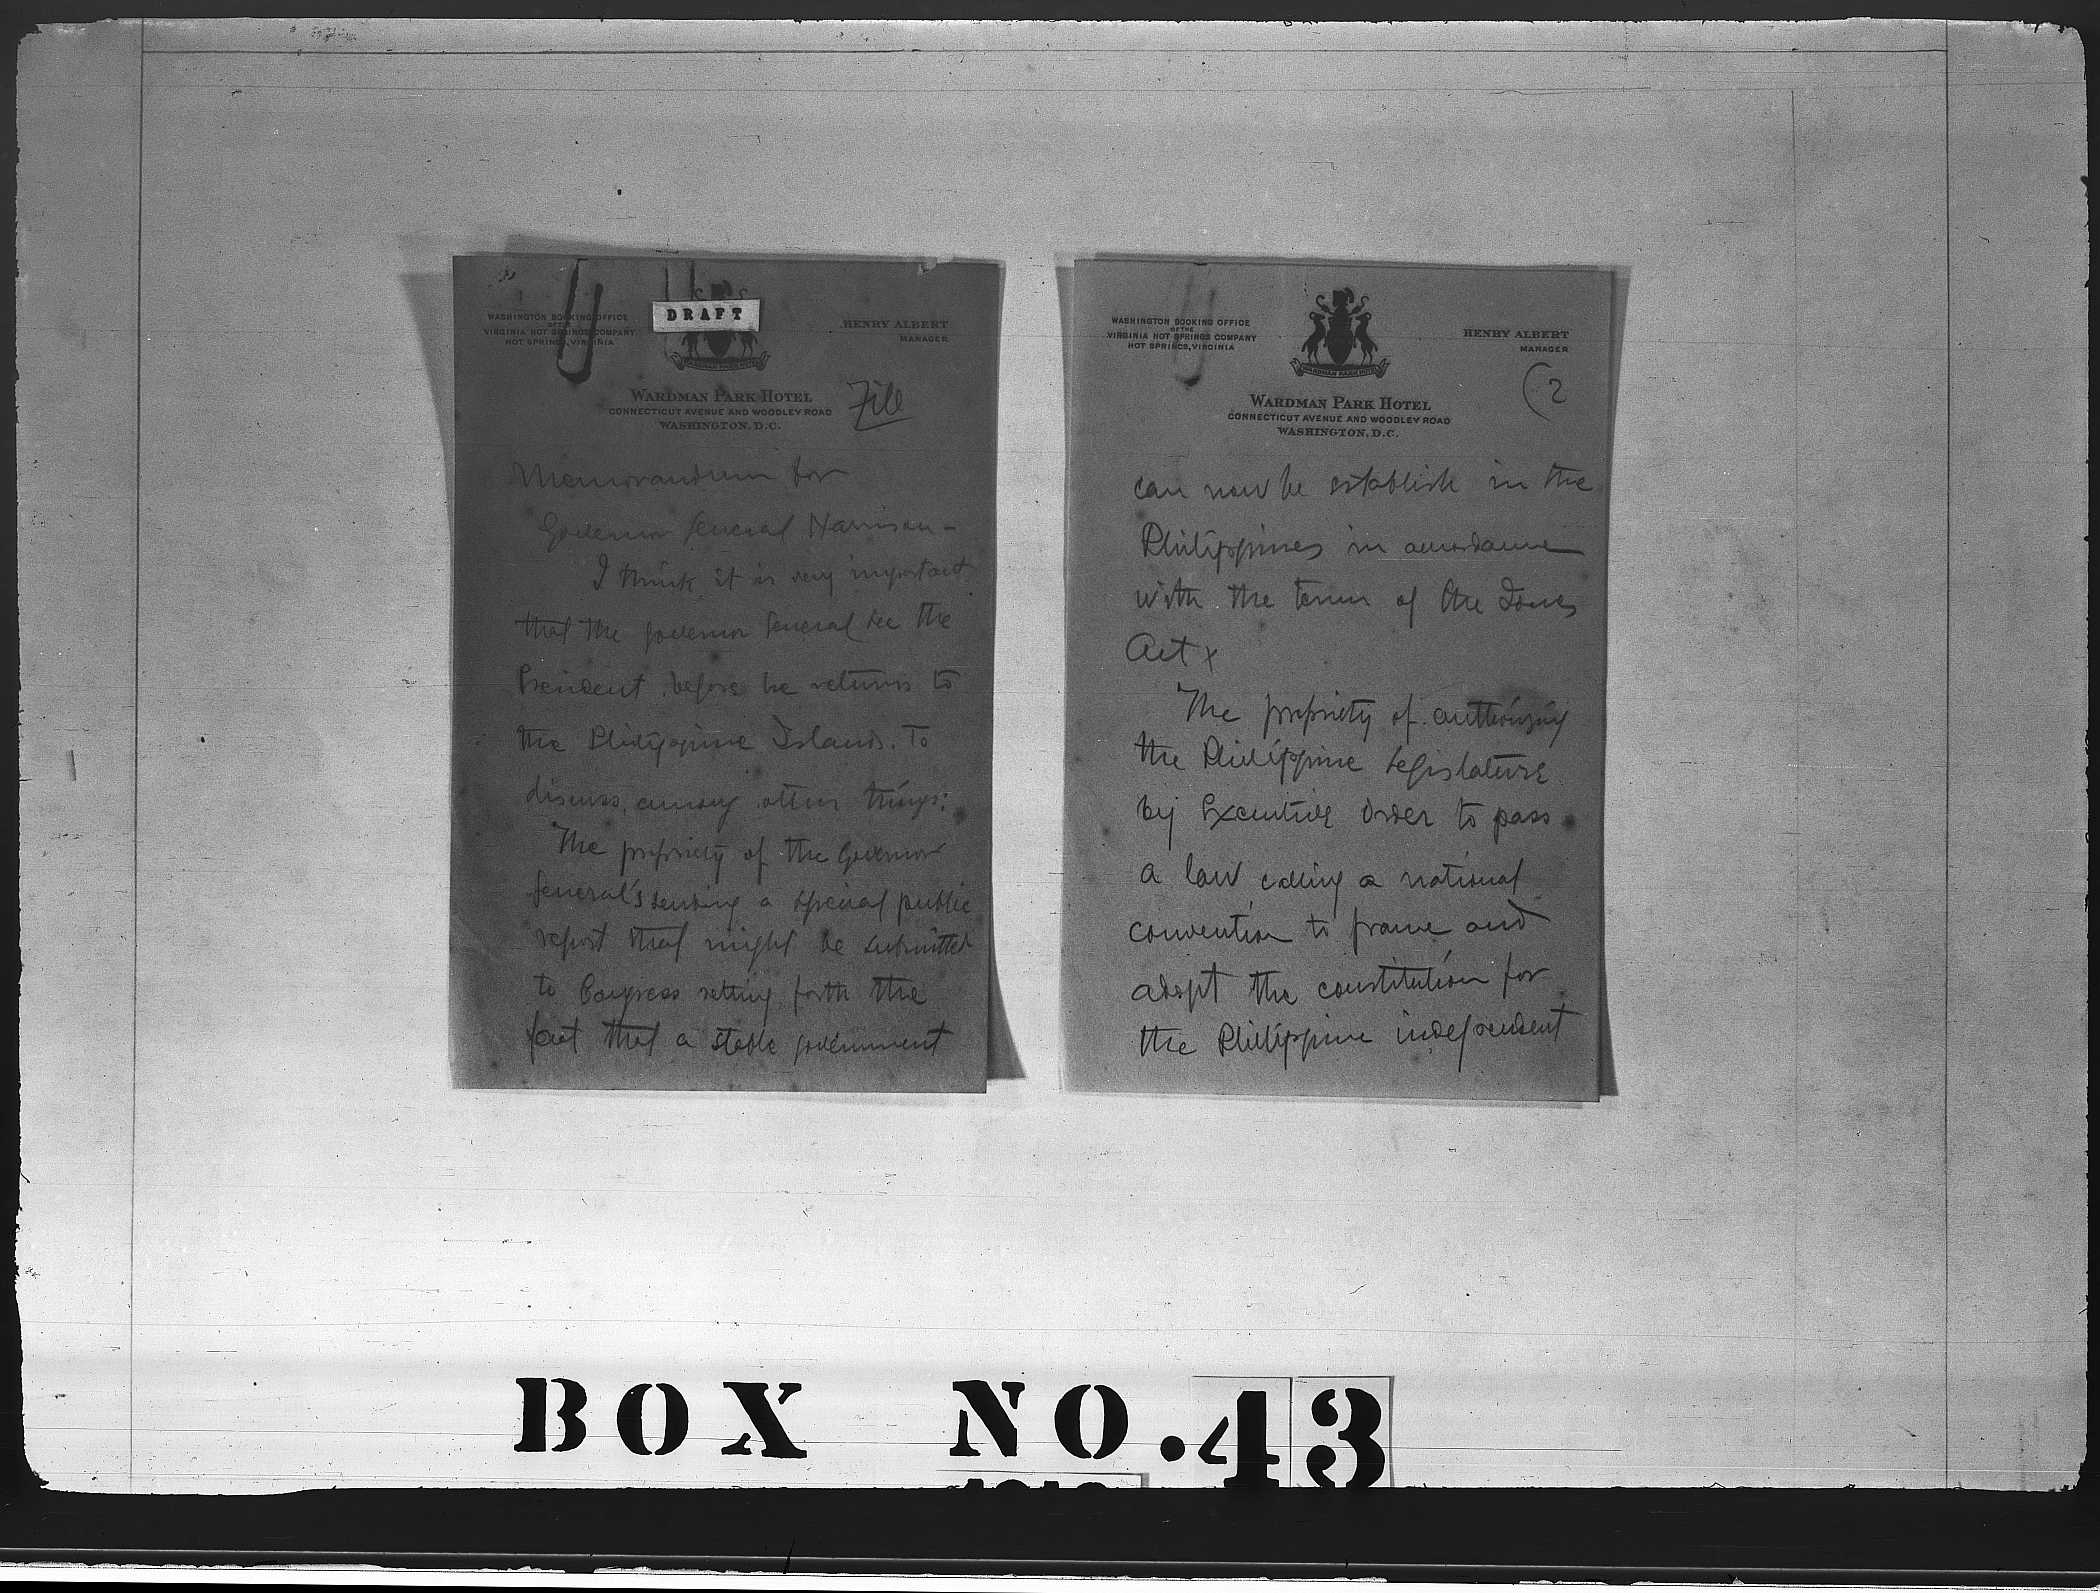 WASHINGTON BOOKING OFFICE
OF THE
VIRGINIA HOT SPRINGS COMPANY
HOT SPRINGS, VIRGINIA
DRAFT
HENRY ALBERT
MANAGER
WARDMAN PARK HOTEL
CONNECTICUT AVENUE AND WOODLEY ROAD
WASHINGTON, D.C.
File
Memorandum for
Governor General Harrison -
I think it is very important
that the Governor General see the
President before he returns to
the Philippine Islands. To
discuss, among other things:
The propriety of the Governor
General's sending a special public
report that might be submitted
to Congress setting forth the
fact that a stable government
WASHINGTON BOOKING OFFICE
OF THE
VIRGINIA HOT SPRINGS COMPANY
HOT SPRINGS, VIRGINIA
WARDMAN PARK HOTEL
HENRY ALBERT
MANAGER
(2
WARDMAN PARK HOTEL
CONNECTICUT AVENUE AND WOODLEY ROAD
WASHINGTON, D.C.
can now be establish in the
Philippines in accordance
with the terms of the Jones
Act x
The propriety of authorizing
the Philippine Legislature
by Executive Order to pass
a law calling a national
convention to frame and
adopt the constitution for
the Philippine independent
BOX NO. 43